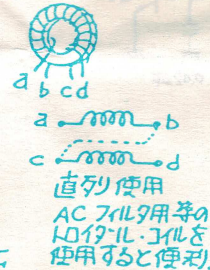 a b c d
a b
c d
直列使用
ACフィルタ用等の
トロイダル・コイルを
使用すると便利